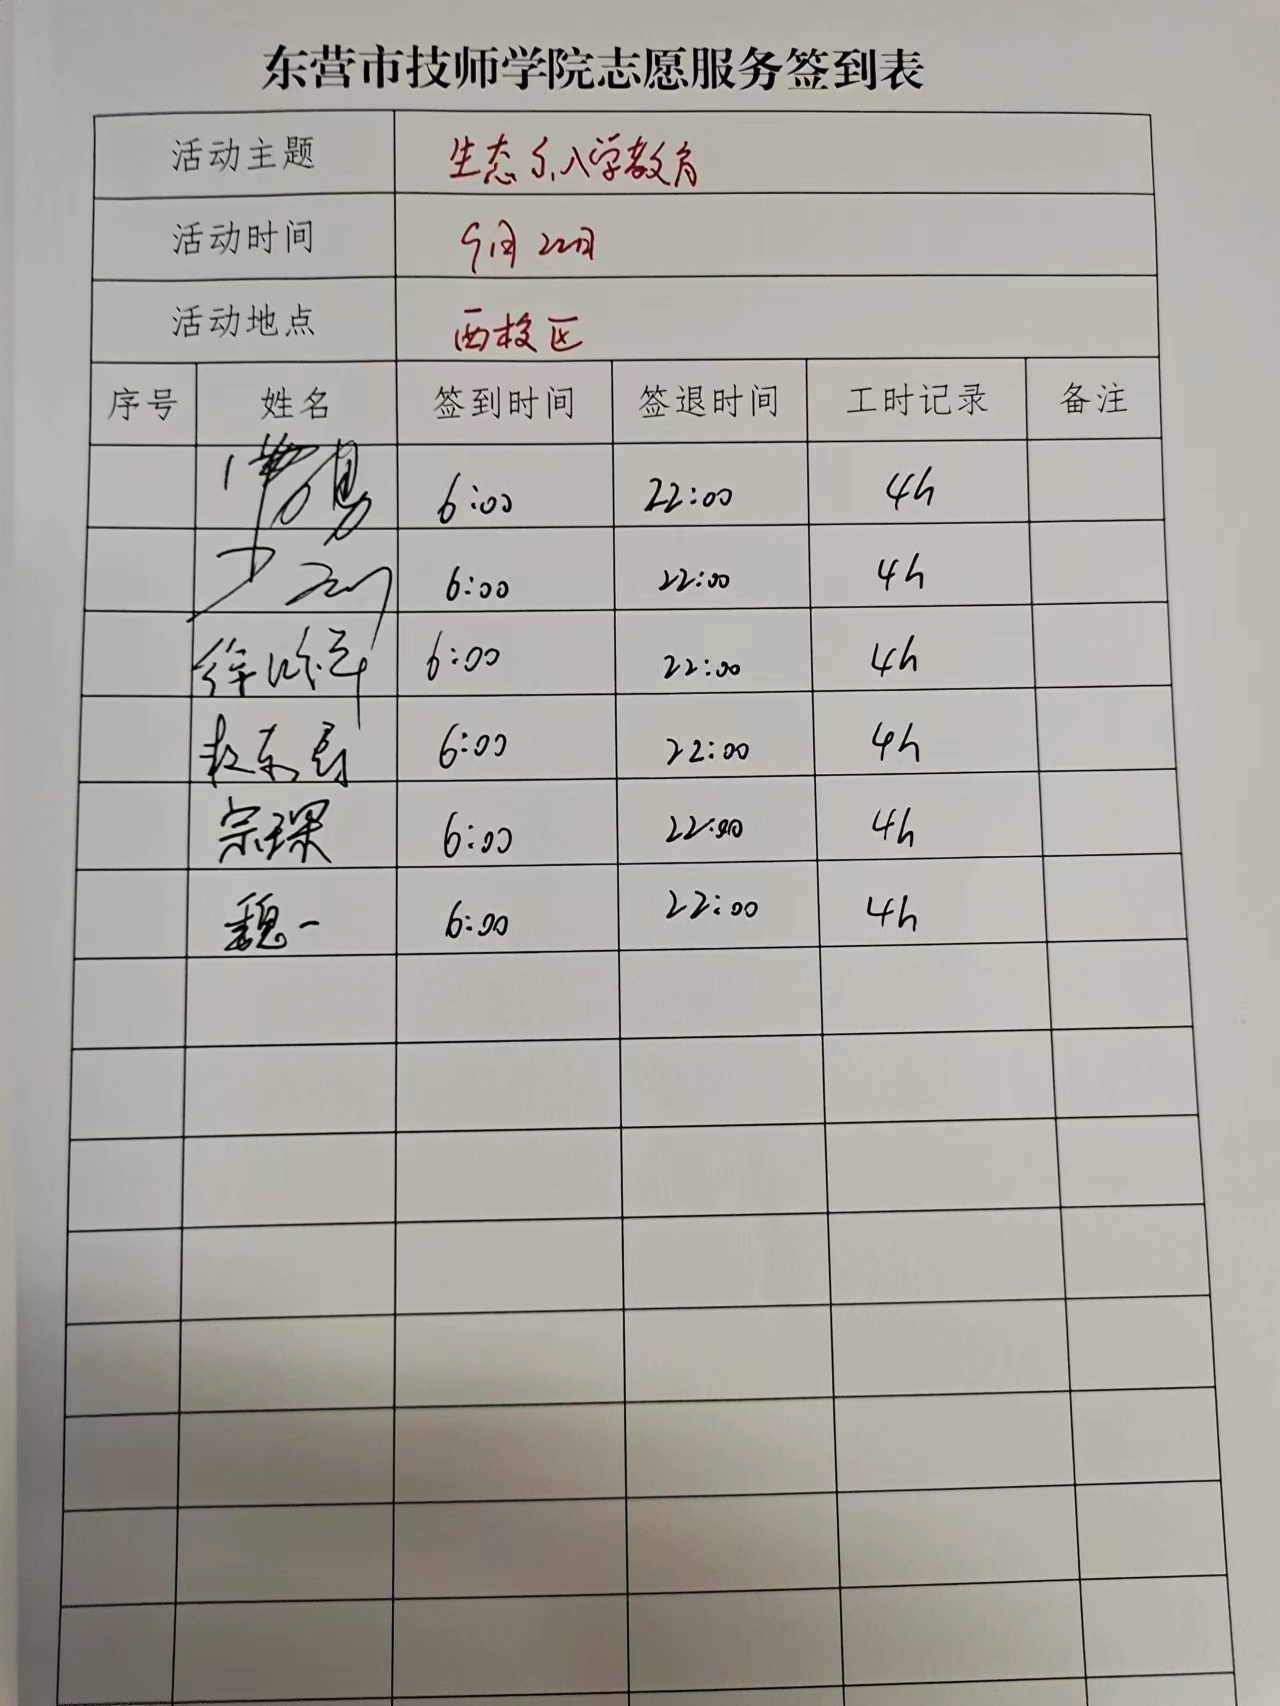 东营市技师学院志愿服务签到表
活动主题 生态系入学教育
活动时间 9月22日
活动地点 西校区
序号 姓名 签到时间 签退时间 工时记录 备注
6:00 22:00 4h
6:00 22:00 4h
徐 6:00 22:00 4h
东 6:00 22:00 4h
宗琛 6:00 22:00 4h
魏一 6:00 22:00 4h